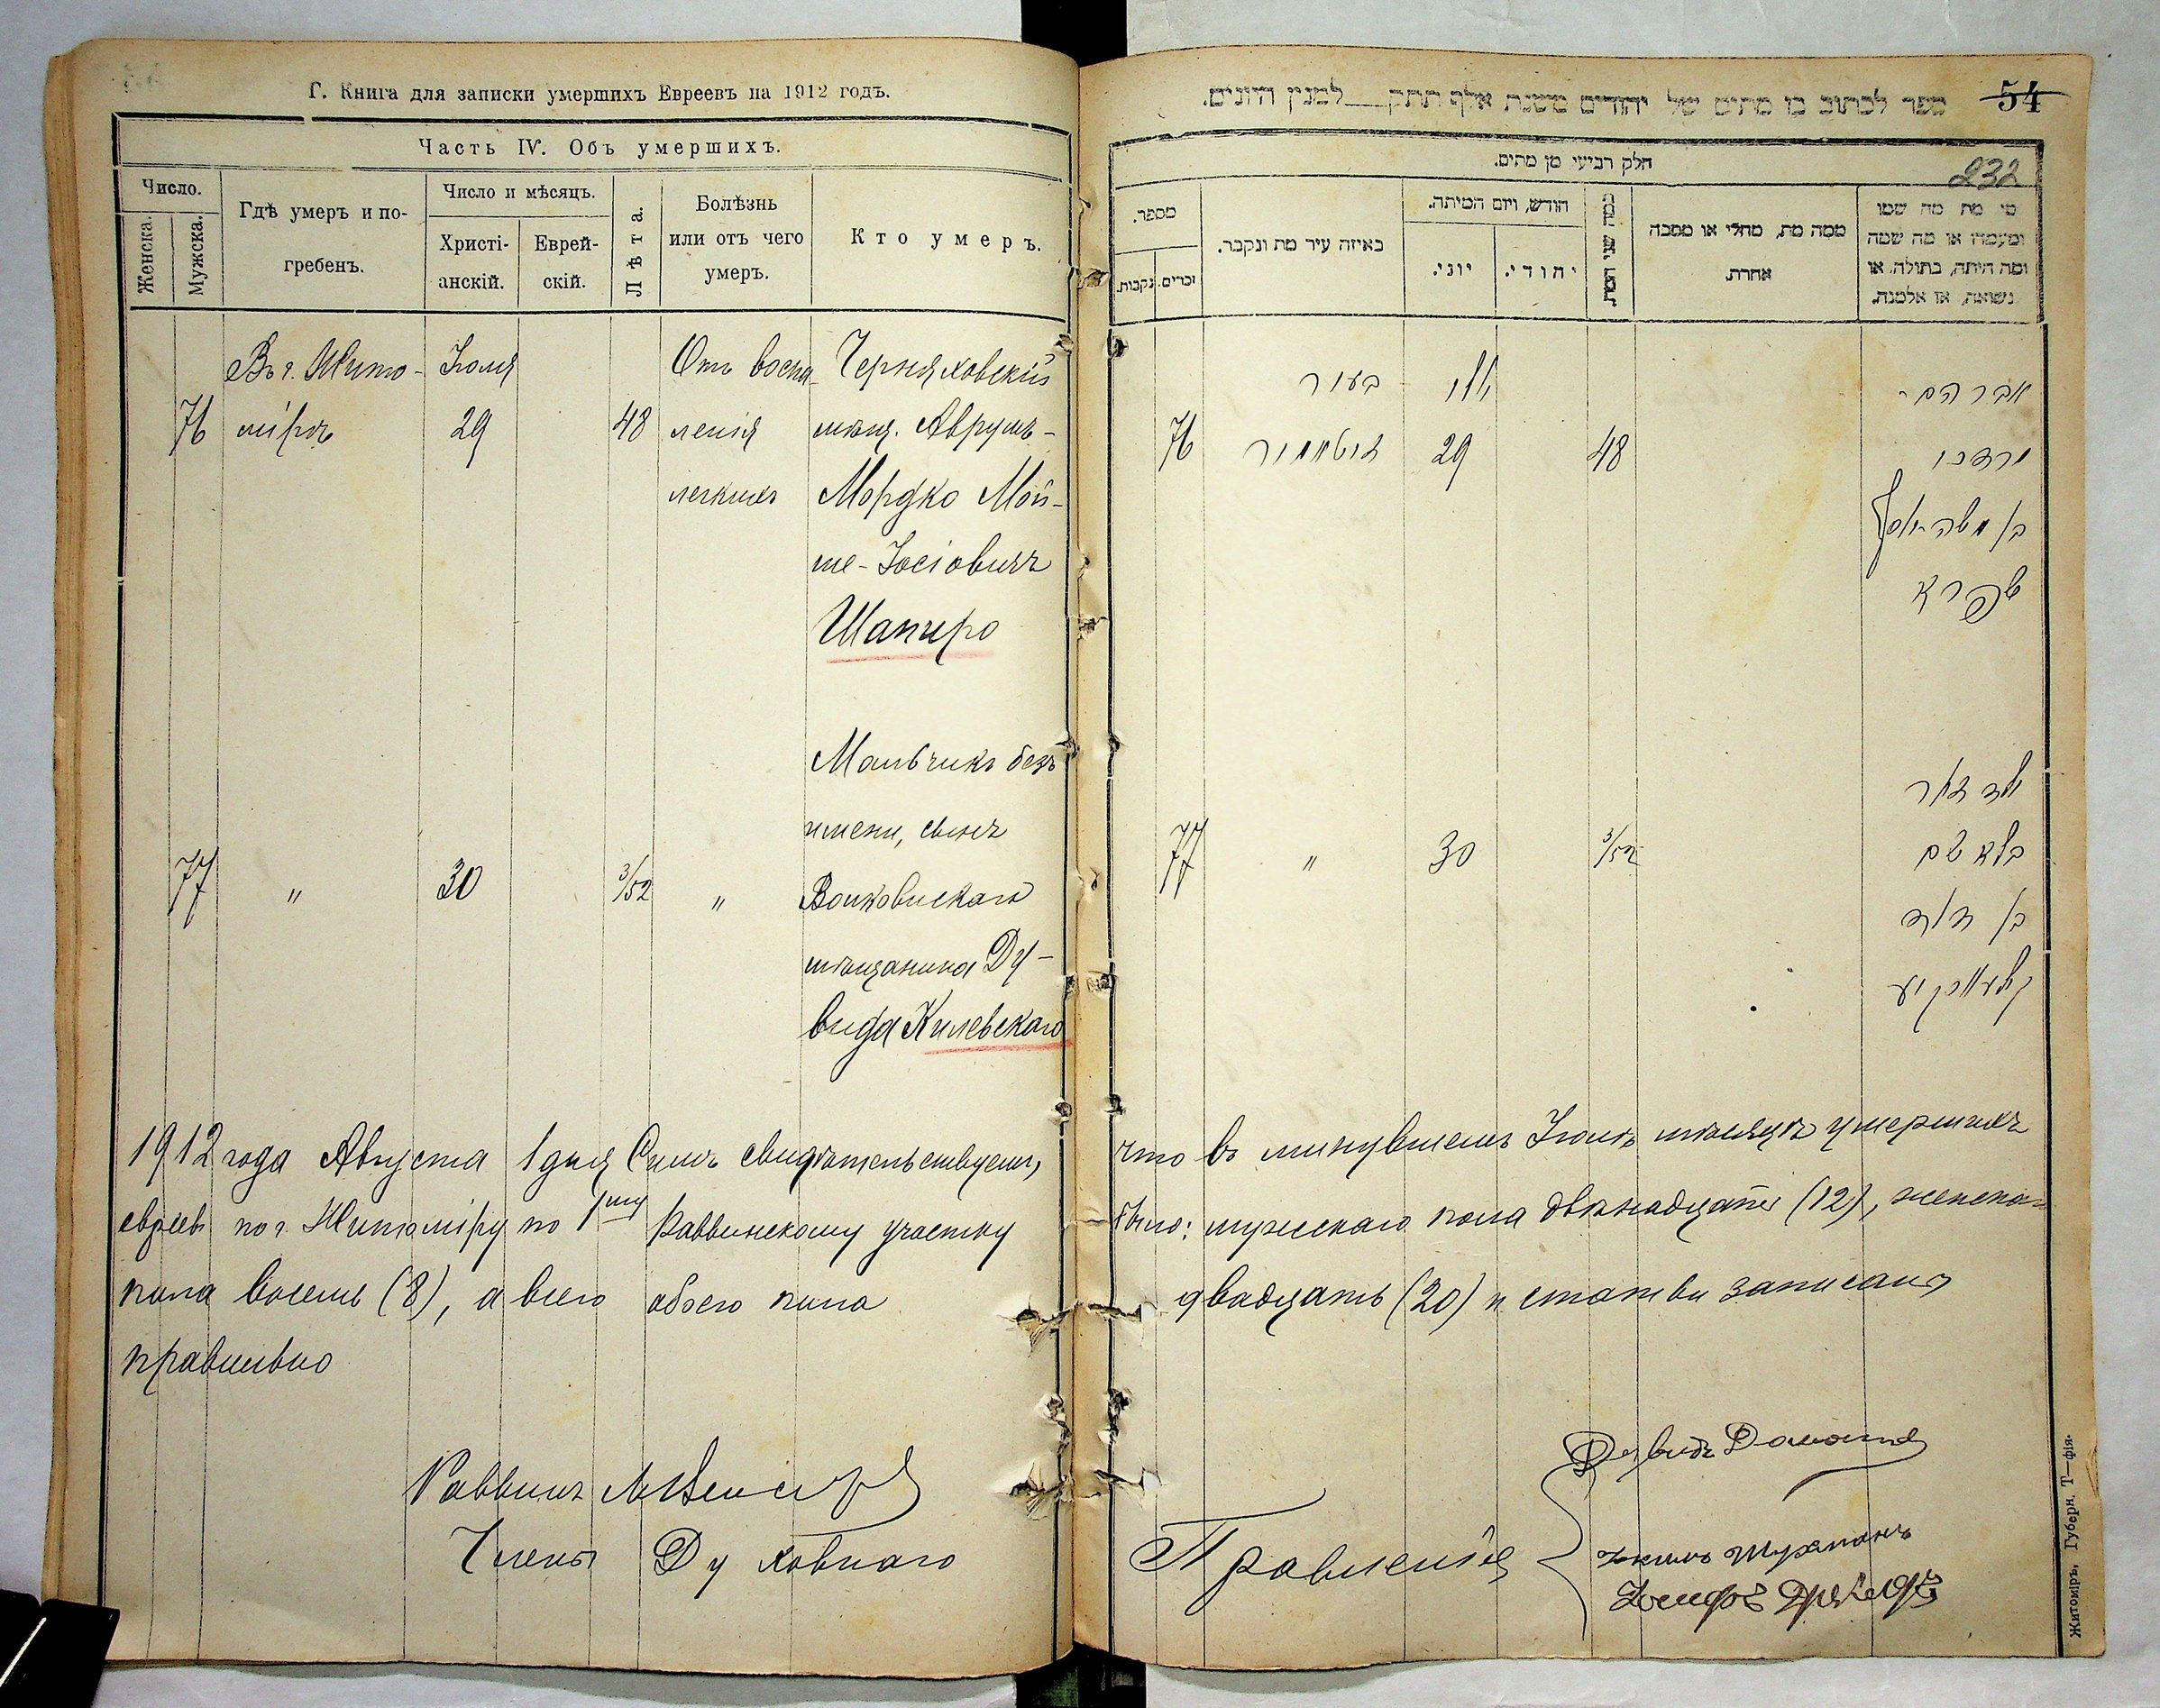 Г. Книга для записки умершихъ Евреевъ на 1912 годъ.
Часть IV. Объ умершихъ.
Число.
Женска.
Мужска.
Гдѣ умеръ и по-
гребенъ.
Число и мѣсяцъ.
Христі-
анскій.
Еврей-
скій.
Лѣта.
Болѣзнь
или отъ чего
умеръ.
Кто умеръ.
Въ г. Жито- Іюля Отъ воспа- Черняховскій
76 мірѣ 29 48 ленія мѣщ. Аврумъ-
легкихъ Мордко Мой-
ше-Іосіовичъ
Шапиро
Мальчикъ безъ
имени, сынъ
77 " 30 3/52 " Волковискаго
мѣщанина Ду-
вида Килевскаго
1912 года Августа 1 дня Симъ свидѣтельствуемъ,
евреевъ по г. Житоміру по 1му Раввинскому участку
пола восемь (8), а всего обоего пола
правильно
Раввинъ
Члены Духовнаго
ספר לכתוב בו מתים של יהודים משנת אלף תתק למנין היונים.
54
232
חלק רביעי מן מתים.
מספר.
נקבות.
זכרים.
באיזה עיר מת ונקבר.
חודש, ויום המיתה.
יוני.
יהודי.
כמה שני המת.
ממה מת, מחלי או מסבה
אחרת.
מי מת מה שמו
ומעמדו או מה שמה
ומה היתה, בתולה, או
נשואה, או אלמנה.
בעיר יולי אברהם-
76 זיטאמיר 29 48 מרדכי
בן משה יוסף
שפירא
ילד זכר
77 " 30 3/52 בלא שם
בן דוד
что въ минувшемъ Іюлѣ мѣсяцѣ умершихъ
было: мужескаго пола двѣнадцать (12), женска-
двадцать (20) и статьи записаны
Правленія
Давидъ
Іосифъ
Житоміръ, Губерн. Т—фія.